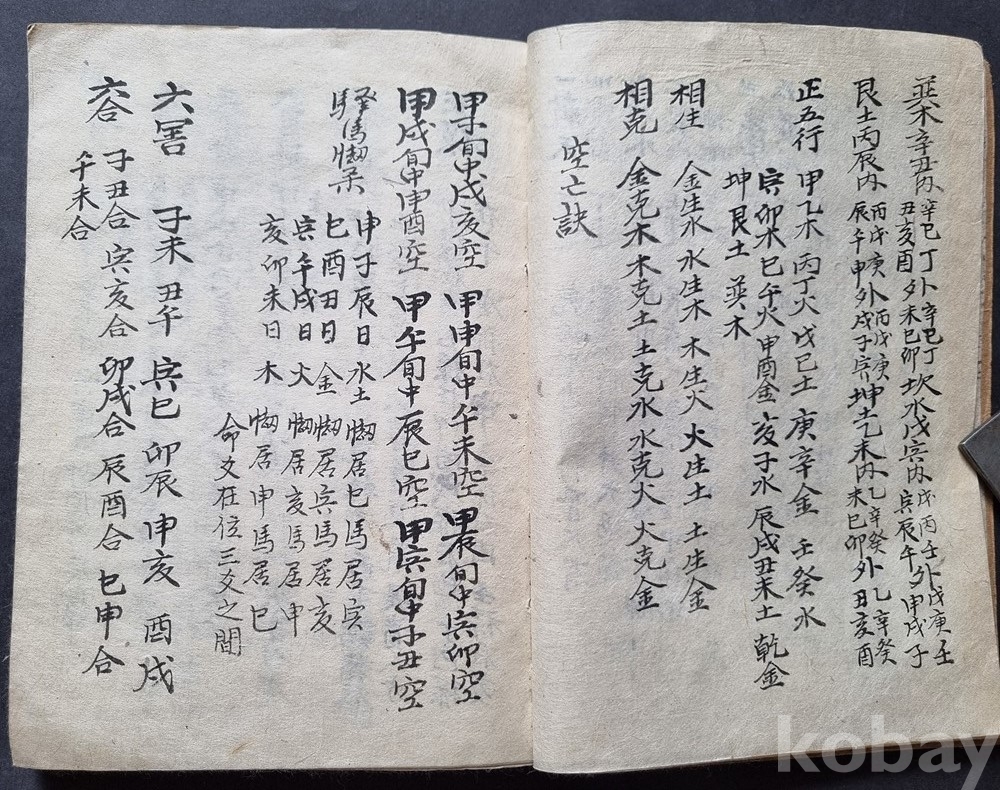 巽木辛丑內 辛巳丁外辛巳丁
丑亥酉夕未巳卯坎水戊寅內戊丙壬外戊庚壬
寅辰午甲戌子
艮土丙辰內 丙戊庚外丙戊庚
辰午申外戌子寅坤土乙未內乙辛癸外乙辛癸
未巳卯外丑亥酉
正五行 甲乙木 丙丁火 戊己土 庚辛金 壬癸水
寅卯木 巳午火 申酉金 亥子水 辰戌丑未土 乾金
坤艮土 巽木
相生 金生水 水生木 木生火 火生土 土生金
相克 金克木 木克土 土克水 水克火 火克金
空亡訣
甲子旬中戌亥空 甲申旬中午未空 甲辰旬中寅卯空
甲戌旬中申酉空 甲午旬中辰巳空 甲寅旬中子丑空
馬
申子辰日 水土 居巳馬居寅
巳酉丑日 金 居寅馬居亥
寅午戌日 火 居亥馬居申
亥卯未日 木 居申馬居巳
命爻在位三爻之間
六害 子未 丑午 寅巳 卯辰 申亥 酉戌
六合 子丑合 寅亥合 卯戌合 辰酉合 巳申合
午未合
kobay